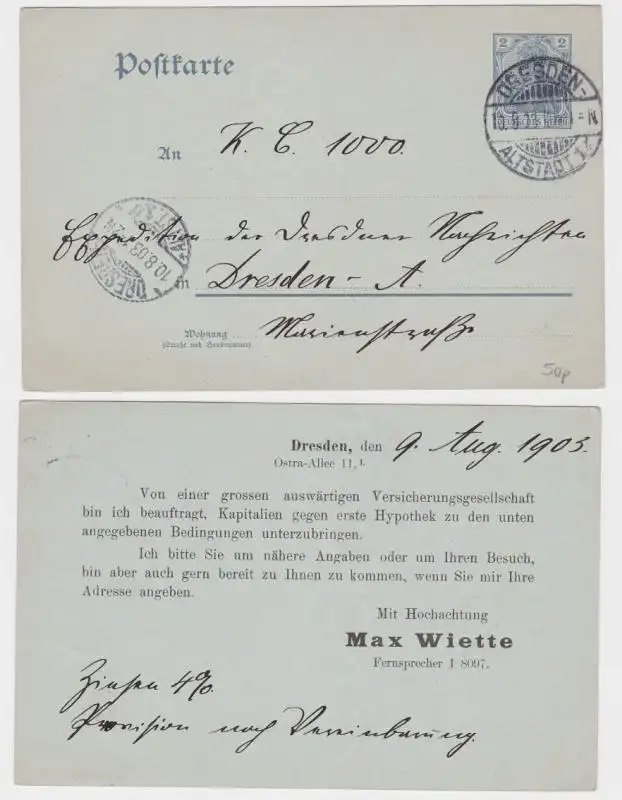 Postkarte
2 2
DEUTSCHES REICH
DRESDEN-
ALTSTADT 1
An K. C. 1000.
Expedition der Dresdner Nachrichten
in Dresden-A.
Wohnung Marienstraße
(Straße und Hausnummer)
DRESDEN
10.8.03.
50p
Dresden, den 9. Aug. 1903.
Ostra-Allee 11, I.
Von einer grossen auswärtigen Versicherungsgesellschaft
bin ich beauftragt, Kapitalien gegen erste Hypothek zu den unten
angegebenen Bedingungen unterzubringen.
Ich bitte Sie um nähere Angaben oder um Ihren Besuch,
bin aber auch gern bereit zu Ihnen zu kommen, wenn Sie mir Ihre
Adresse angeben.
Mit Hochachtung
Max Wiette
Fernsprecher I 8097.
Zinsen 4%.
Provision nach Vereinbarung.